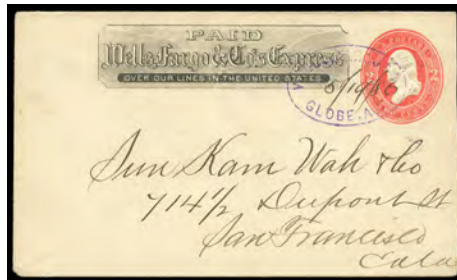 PAID
Wells Fargo & Co's Express
OVER OUR LINES IN THE UNITED STATES
5/19/86
GLOBE, A
Sun Kam Wah & Co
714½ Dupont St
San Francisco
Cala